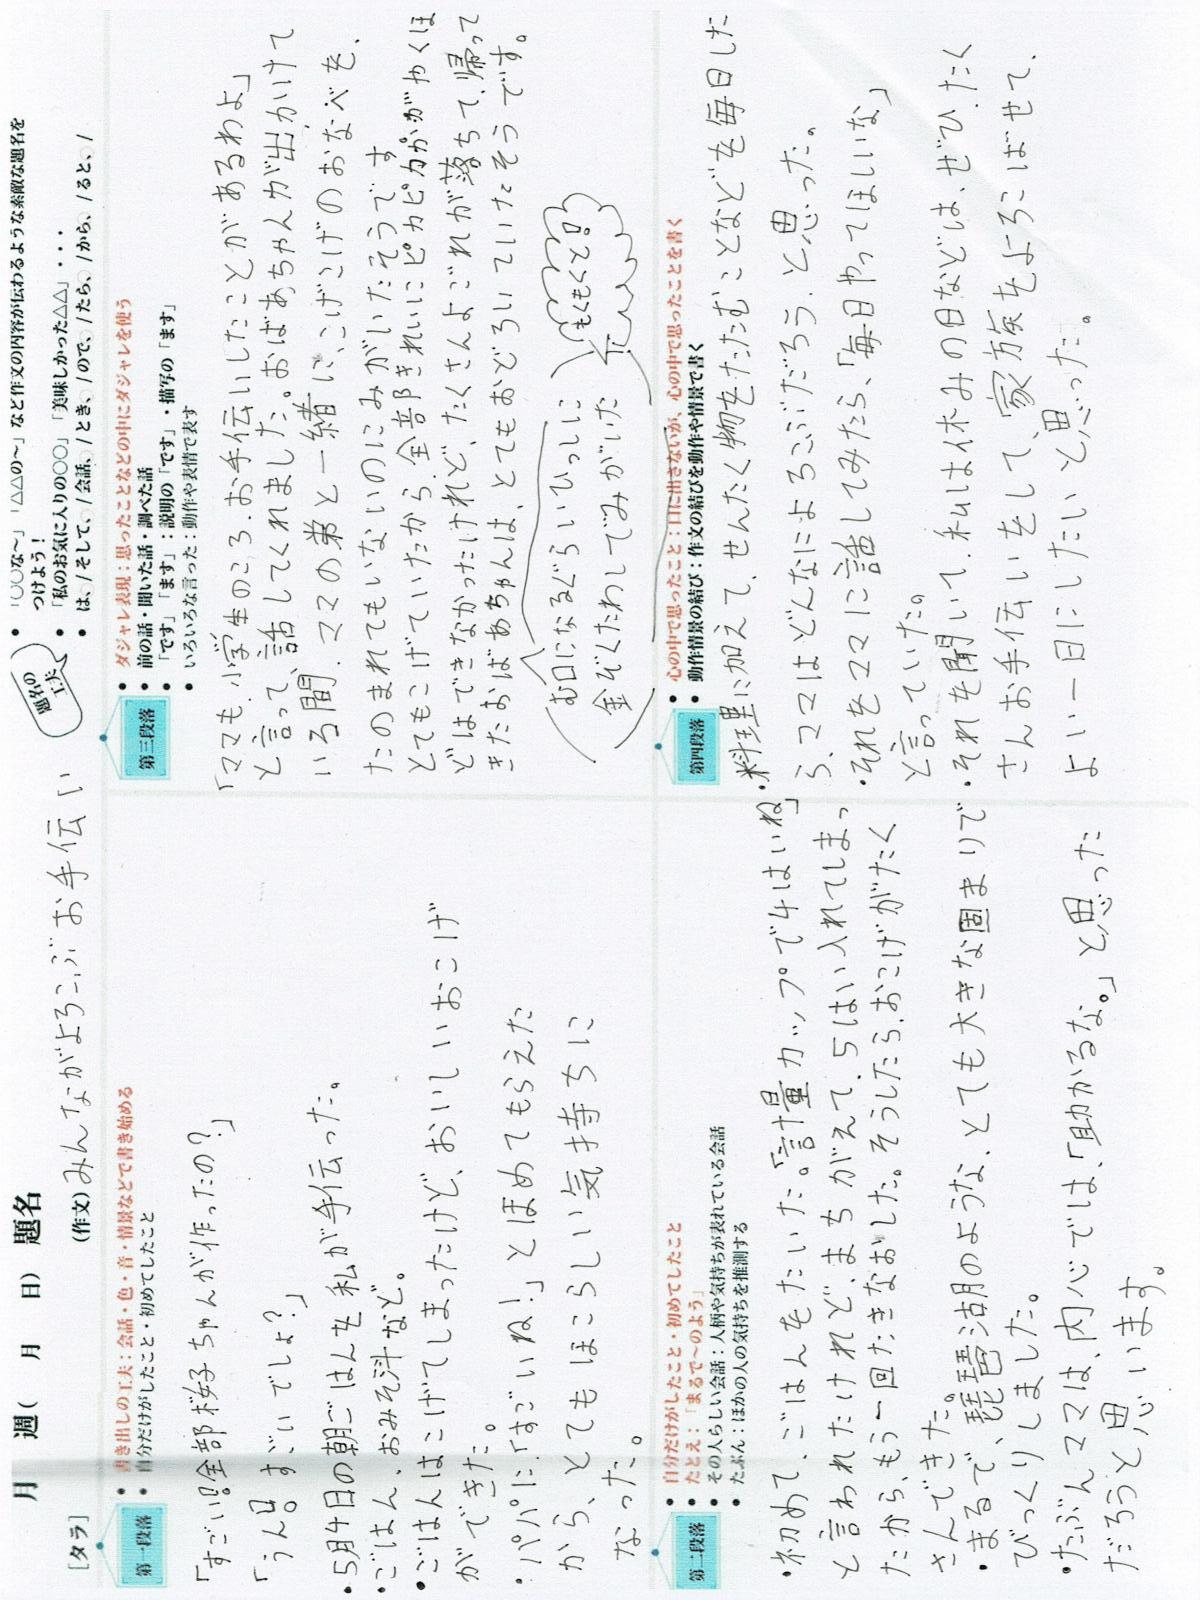 月 週( 月 日) 題名
[タラ]
(作文) みんながよろこぶお手伝い
題名の工夫
• 「○○な~」「△△の~」など作文の内容が伝わるような素敵な題名をつけよう!
• 「私のお気に入りの○○」「美味しかった△△」・・・
• は、/そして、/会話、/とき、/ので、/たら、/から、/ると、/
第一段落
• 書き出しの工夫:会話・色・音・情景などで書き始める
• 自分だけがしたこと・初めてしたこと
「すごい!!全部桜子ちゃんが作ったの?」
「うん!!すごいでしょ?」
・5月4日の朝ごはんを私が手伝った。
・ごはん、おみそ汁など。
・ごはんはこげてしまったけど、おいしいおこげ
ができた。
・パパに、「すごいね!」とほめてもらえた
から、とてもほこらしい気持ちに
なった。
第二段落
• 自分だけがしたこと・初めてしたこと
• たとえ:「まるで~のよう」
• その人らしい会話:人柄や気持ちが表れている会話
• たぶん:ほかの人の気持ちを推測する
・初めて、ごはんをたいた。「計量カップで4はいね」
と言われたけれど、まちがえて、5はい入れてしまっ
たから、もう一回たきなおした。そうしたら、おこげがたく
さんできた。
・まるで、琵琶湖のような、とても大きな固まりで
びっくりしました。
・たぶんママは、内心では、「助かるな。」と思った
だろうと思います。
第三段落
• ダジャレ表現:思ったことなどの中にダジャレを使う
• 前の話・聞いた話・調べた話
「です」「ます」:説明の「です」・描写の「ます」
• いろいろな言った:動作や表情で表す
「ママも、小学生のころ、お手伝いしたことがあるわよ」
と言って、話してくれました。おばあちゃんが出かけて
いる間、ママの弟と一緒に、こげこげのおなべを、
たのまれてもいないのにみがいたそうです
とてもこげていたから、全部きれいにピカピカがやくほ
どはできなかったけれど、たくさんよごれが落ちて、帰って
きたおばあちゃんは、とてもおどろいていたそうです。
む口になるぐらいひっしに
金ぞくたわしでみがいた
もくもくと!!
第四段落
• 心の中で思ったこと:口に出さないが、心の中で思ったことを書く
• 動作情景の結び:作文の結びを動作や情景で書く
・料理に加えて、せんたく物をたたむことなどを毎日した
ら、ママはどんなによろこぶだろう、と思った。
・それをママに話してみたら、「毎日やってほしいな」
と言っていた。
・それを聞いて、私は休みの日などは、ぜひ、たく
さんお手伝いをして、家族をよろこばせて、
よい一日にしたいと思った。